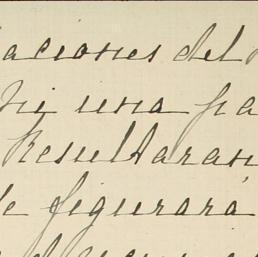 aciones del
ni una pa
Resultaran
e figurará